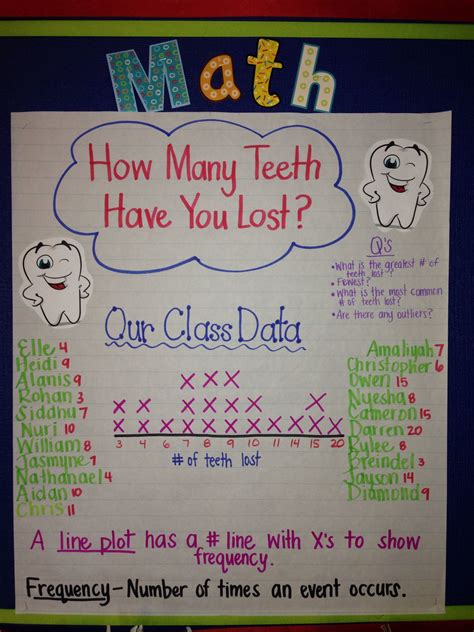 Math
How Many Teeth
Have You Lost?
Q's
• What is the greatest # of
teeth lost?
• Fewest?
• What is the most common
# of teeth lost?
• Are there any outliers?
Our Class Data
Elle 4
Heidi 9
Alanis 9
Rohan 3
Siddhu 7
Nuri 10
William 8
Jasmyne 7
Nathanael 4
Aidan 10
Chris 11
Amaliyah 7
Christopher 6
Owen 15
Nyesha 8
Cameron 15
Darren 20
Rylee 8
Breindel 3
Jayson 14
Diamond 9
X X X
X X X X X
X X X X X X X X X X X
3 4 6 7 8 9 10 11 14 15 20
# of teeth lost
A line plot has a # line with X's to show
frequency.
Frequency - Number of times an event occurs.